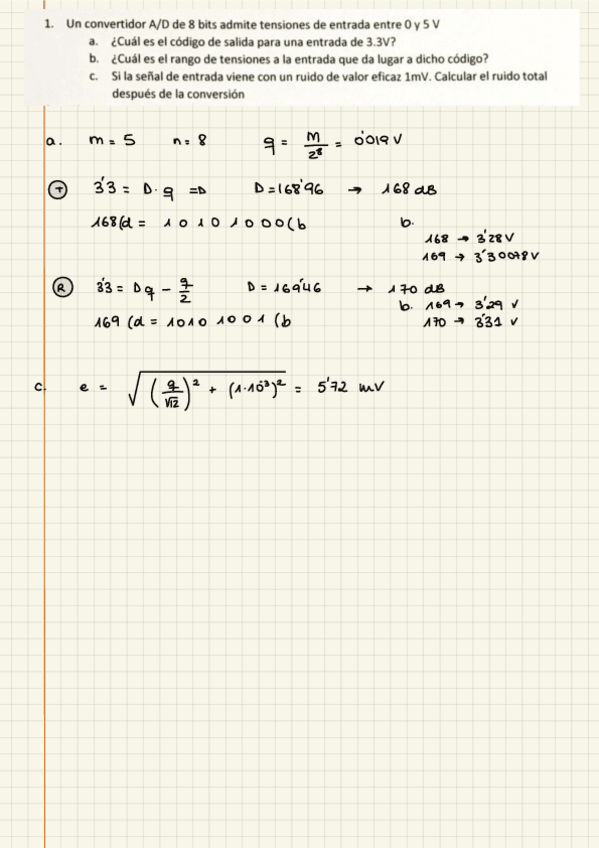 1. Un convertidor A/D de 8 bits admite tensiones de entrada entre 0 y 5 V
a. ¿Cuál es el código de salida para una entrada de 3.3V?
b. ¿Cuál es el rango de tensiones a la entrada que da lugar a dicho código?
c. Si la señal de entrada viene con un ruido de valor eficaz 1mV. Calcular el ruido total
después de la conversión
a. m = 5 n = 8 q = M/2^8 = 0'019 V
(T) 3'3 = D · q => D = 168'96 → 168 dB
168(d = 1 0 1 0 1 0 0 0 (b
b.
168 → 3'28 V
169 → 3'30078 V
(R) 3'3 = Dq - q/2 D = 169'46 → 170 dB
169 (d = 1010 1001 (b
b. 169 → 3'29 V
170 → 3'31 V
c. e = √((q/√12)² + (1·10⁻³)²) = 5'72 mV